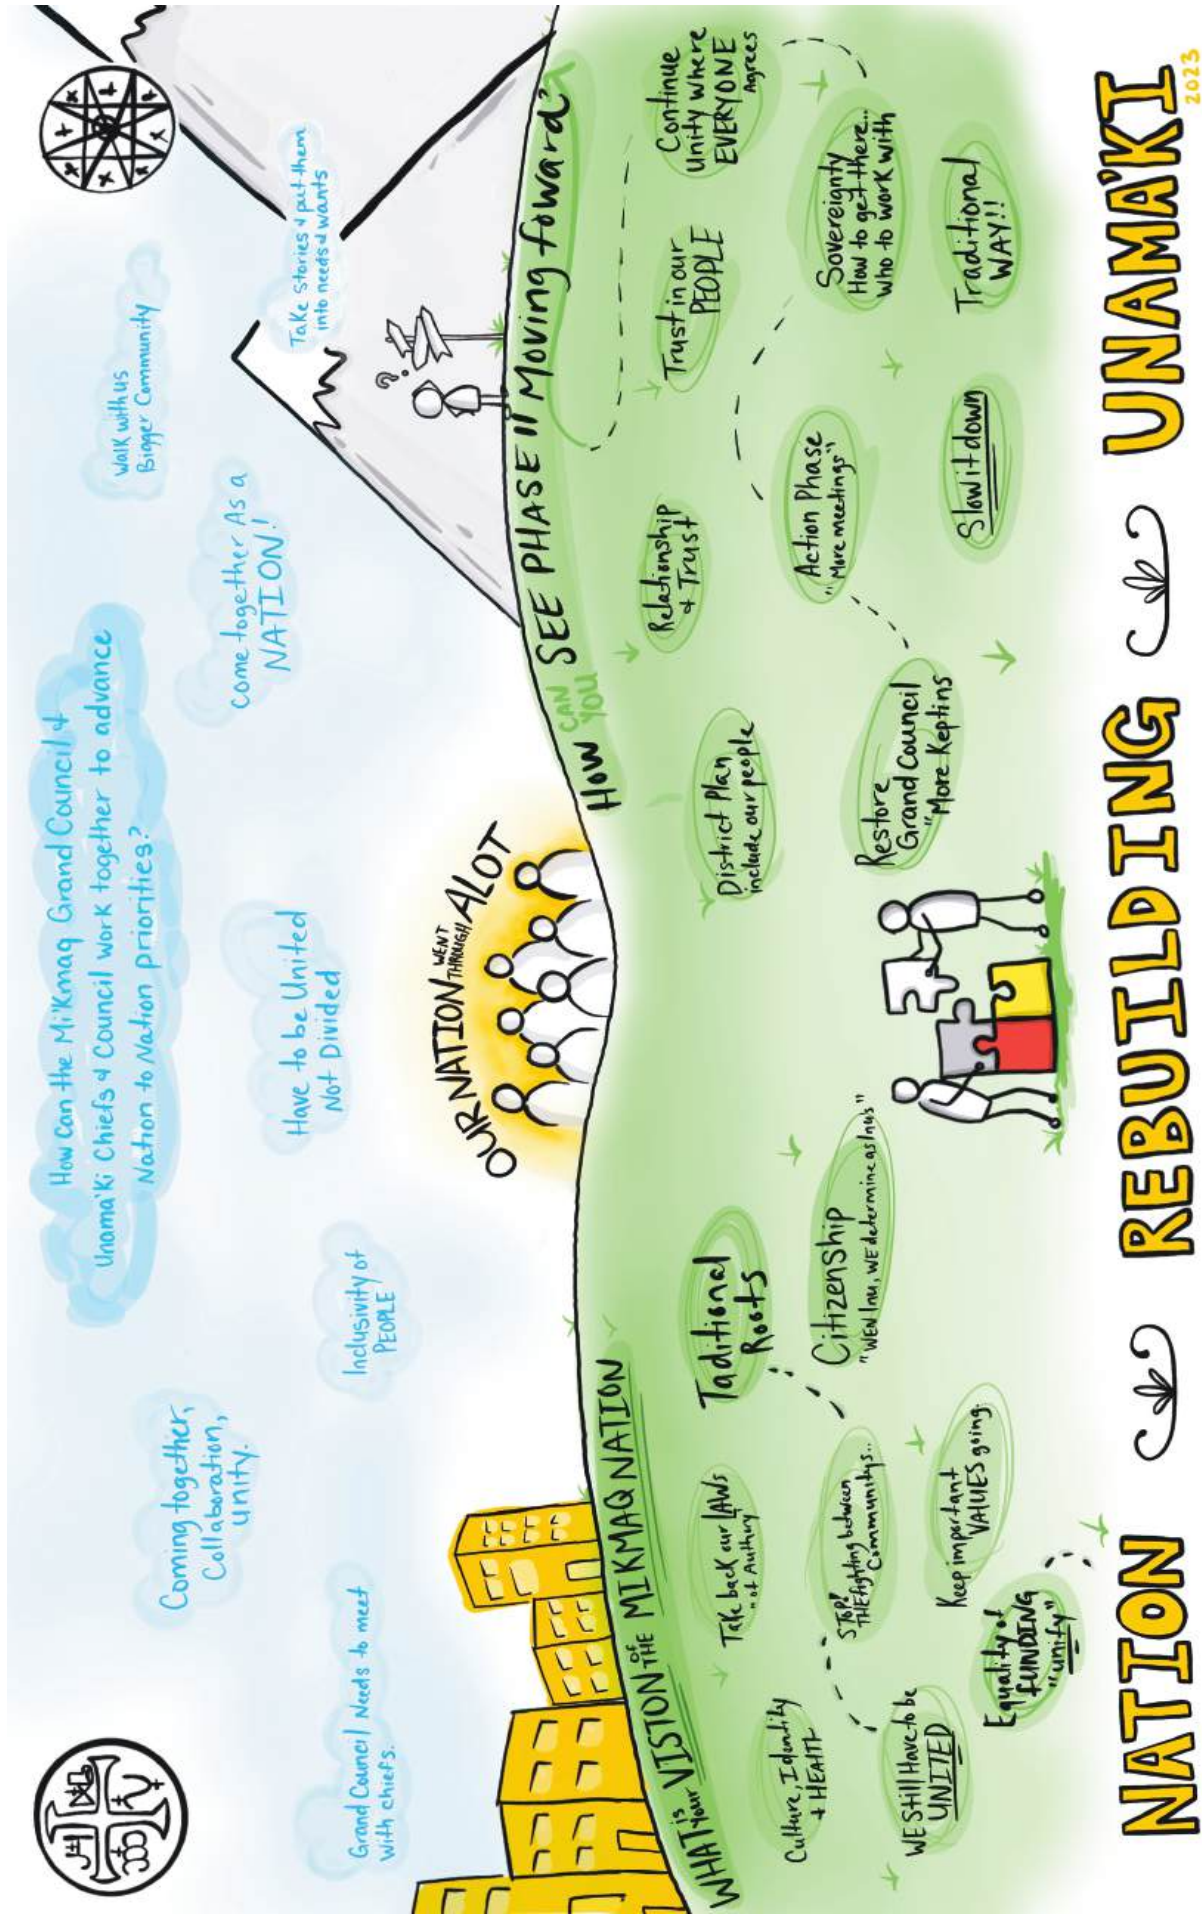 How Can the Mi'Kmaq Grand Council &
Unama'Ki Chiefs & Council work together to advance
Nation to Nation priorities?
Grand Council Needs to meet
with chiefs.
Coming together,
Collaboration,
unity.
Inclusivity of
PEOPLE
Have to be United
Not Divided
Come together As a
NATION!
Walk with us
Bigger Community
Take Stories & put them
into needs & wants
OUR NATION WENT
THROUGH ALOT
?
WHAT is
your VISION OF
THE MIKMAQ NATION
Culture, Identity
+ HEALTH
Take back our LAWs
"of Authory"
Taditional
Roots
WE Still Have to be
UNITED
STOP!
THE fighting between
Communitys..
Citizenship
"WEN Inu, WE determine as Inu's"
Equality of
FUNDING
"unify"
Keep important
VALUES going.
HOW CAN
YOU SEE PHASE II Moving foward?
District Plan
include our people
Relationship
& Trust
Trust in our
PEOPLE
Continue
Unity where
EVERYONE
Agrees
Restore
Grand Council
"More Keptins
Action Phase
"More meetings"
Sovereignty
How to get there..
Who to work with
Slow it down
Traditional
WAY!!
NATION REBUILDING UNAMA'KI
2023